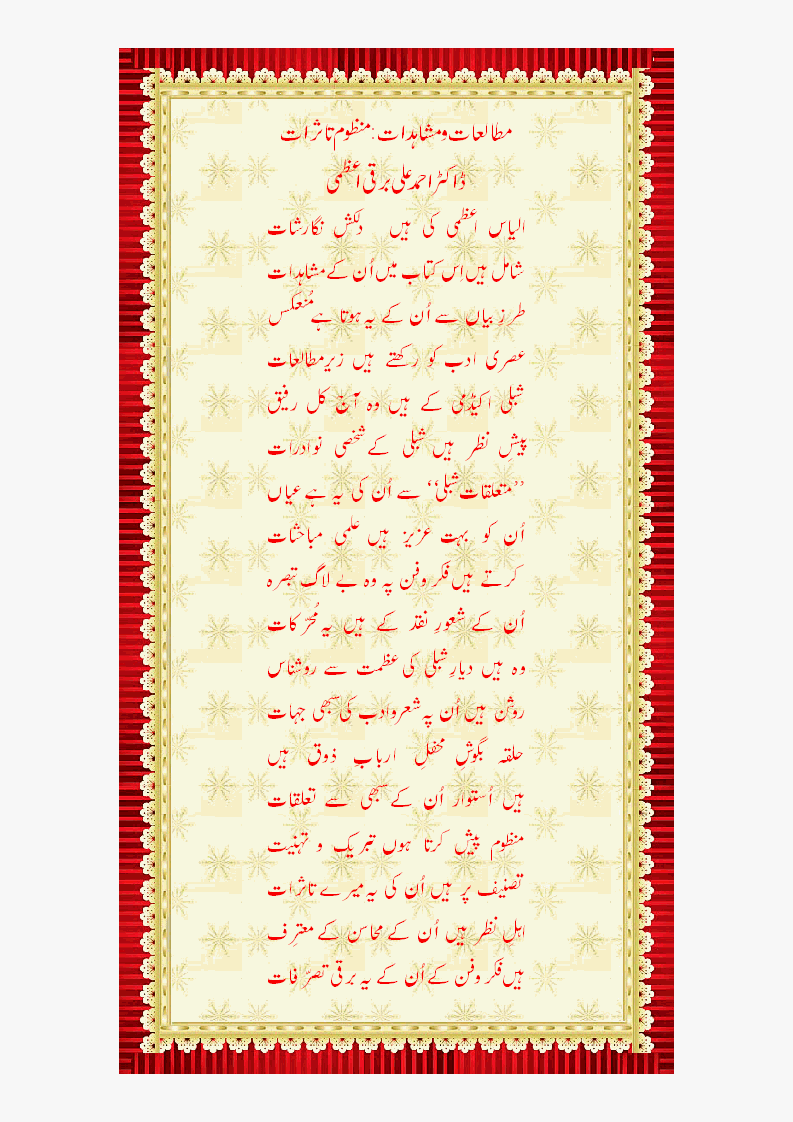 مطالعات ومشاہدات : منظوم تاثرات
ڈاکٹر احمد علی برقی اعظمی
الیاس اعظمی کی ہیں دلکش نگارشات
شامل ہیں اِس کتاب میں اُن کے مشاہدات
طرزِ بیاں سے اُن کے یہ ہوتا ہے مُنعکس
عصری ادب کو رکھتے ہیں زیرِ مطالعات
شبلی اکیڈمی کے ہیں وہ آج کل رفیق
پیشِ نظر ہیں شبلی کے شخصی نوادرات
’’متعلقات شبلی‘‘ سے اُن کی یہ ہے عیاں
اُن کو بہت عزیز ہیں علمی مباحثات
کرتے ہیں فکر وفن پہ وہ بے لاگ تبصرہ
اُن کے شعورِ نقد کے ہیں یہ مُحرّکات
وہ ہیں دیارِ شبلی کی عظمت سے روشناس
روشن ہیں اُن پہ شعر وادب کی سبھی جہات
حلقہ بگوش محفلِ اربابِ ذوق ہیں
ہیں اُستوار اُن کے سبھی سے تعلقات
منظوم پیش کرتا ہوں تبریک و تہنیت
تصنیف پر ہیں اُن کی یہ میرے تاثرات
اہلِ نظر ہیں اُن کے محاسن کے معترِف
ہیں فکر وفن کے اُن کے یہ برقی تصرّفات